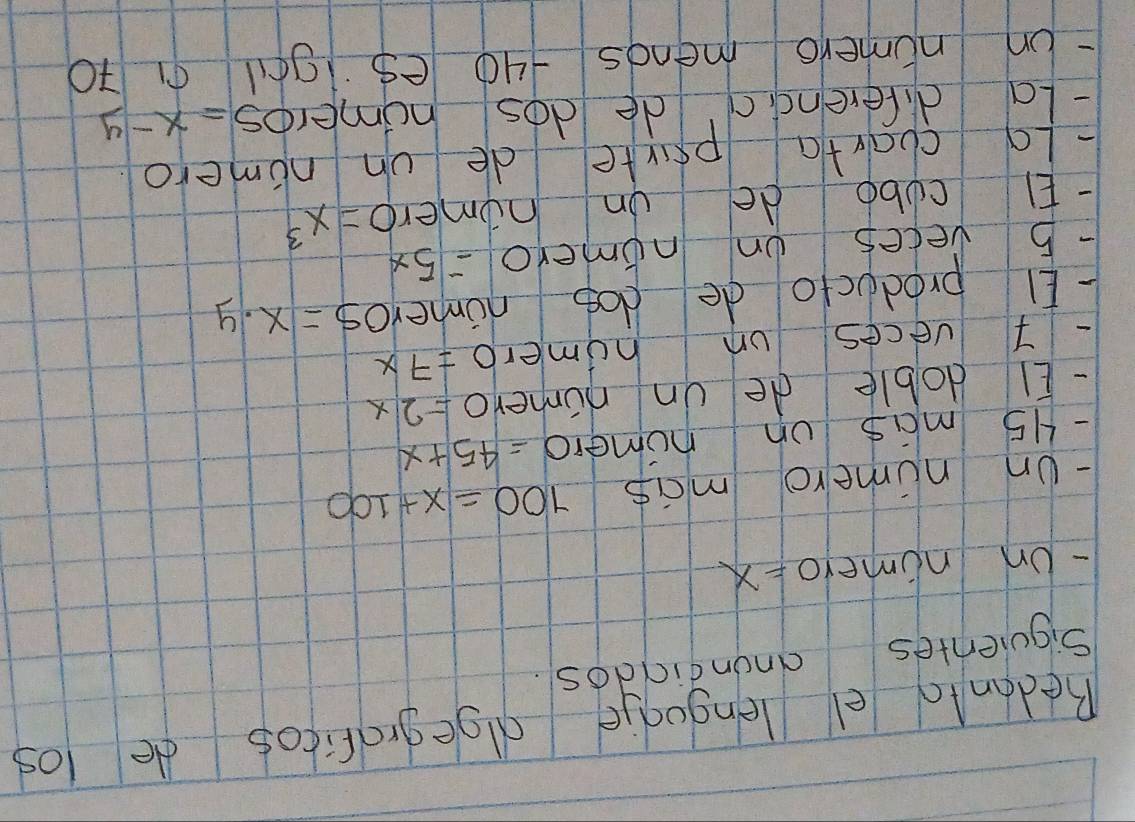 Redanta el lenguaje algegraficos de los
siguientes anunciados.
- Un número = x
- Un número más 100 = x + 100
- 45 más un número = 45 + x
- El doble de un número = 2x
- 7 veces un número = 7x
- El producto de dos números = x . y
- 5 veces un número = 5x
- El cubo de un número = x³
- La cuarta parte de un número
- La diferencia de dos números = x - y
- Un número menos -40 es igual a 70